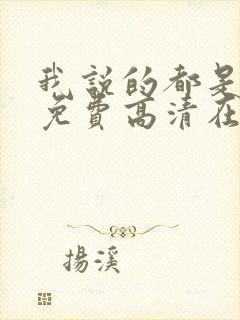 我說的都是
免費高清在
揚溪